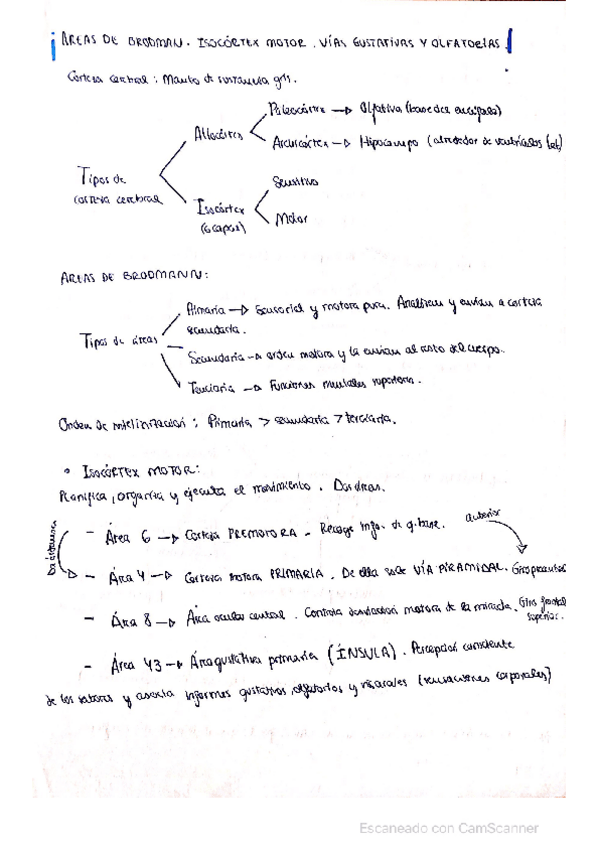 ÁREAS DE BRODMAN. ISOCÓRTEX MOTOR. VÍAS GUSTATIVAS Y OLFATORIAS
Corteza cerebral: Manto de sustancia gris.
Paleocórtex → Olfativa (base del encéfalo)
Allocórtex
Archicórtex → Hipocampo (alrededor de ventrículos lat)
Tipos de
corteza cerebral
Sensitivo
Isocórtex
(6 capas)
Motor
AREAS DE BRODMANN:
Primaria → Sensorial y motora pura. Analizan y envían a corteza
secundaria.
Tipos de áreas
Secundaria → orden motora y la envían al resto del cuerpo.
Terciaria → Funciones mentales superiores.
Orden de mielinización: Primaria > secundaria > terciaria.
• ISOCÓRTEX MOTOR:
Planifica, organiza y ejecuta el movimiento. Dos áreas.
anterior
- Área 6 → Corteza PREMOTORA - Recoge info. de g. base.
Da órdenes a
- Área 4 → Corteza motora PRIMARIA. De ella sale VÍA PIRAMIDAL. Giro precentral
- Área 8 → Área ocular central. Controla motora de la mirada. Giro frontal
superior.
- Área 43 → Área gustativa primaria (ÍNSULA). Percepción consciente
de los sabores y asocia informes gustativos, olfatorios y viscerales (sensaciones corporales)
Escaneado con CamScanner